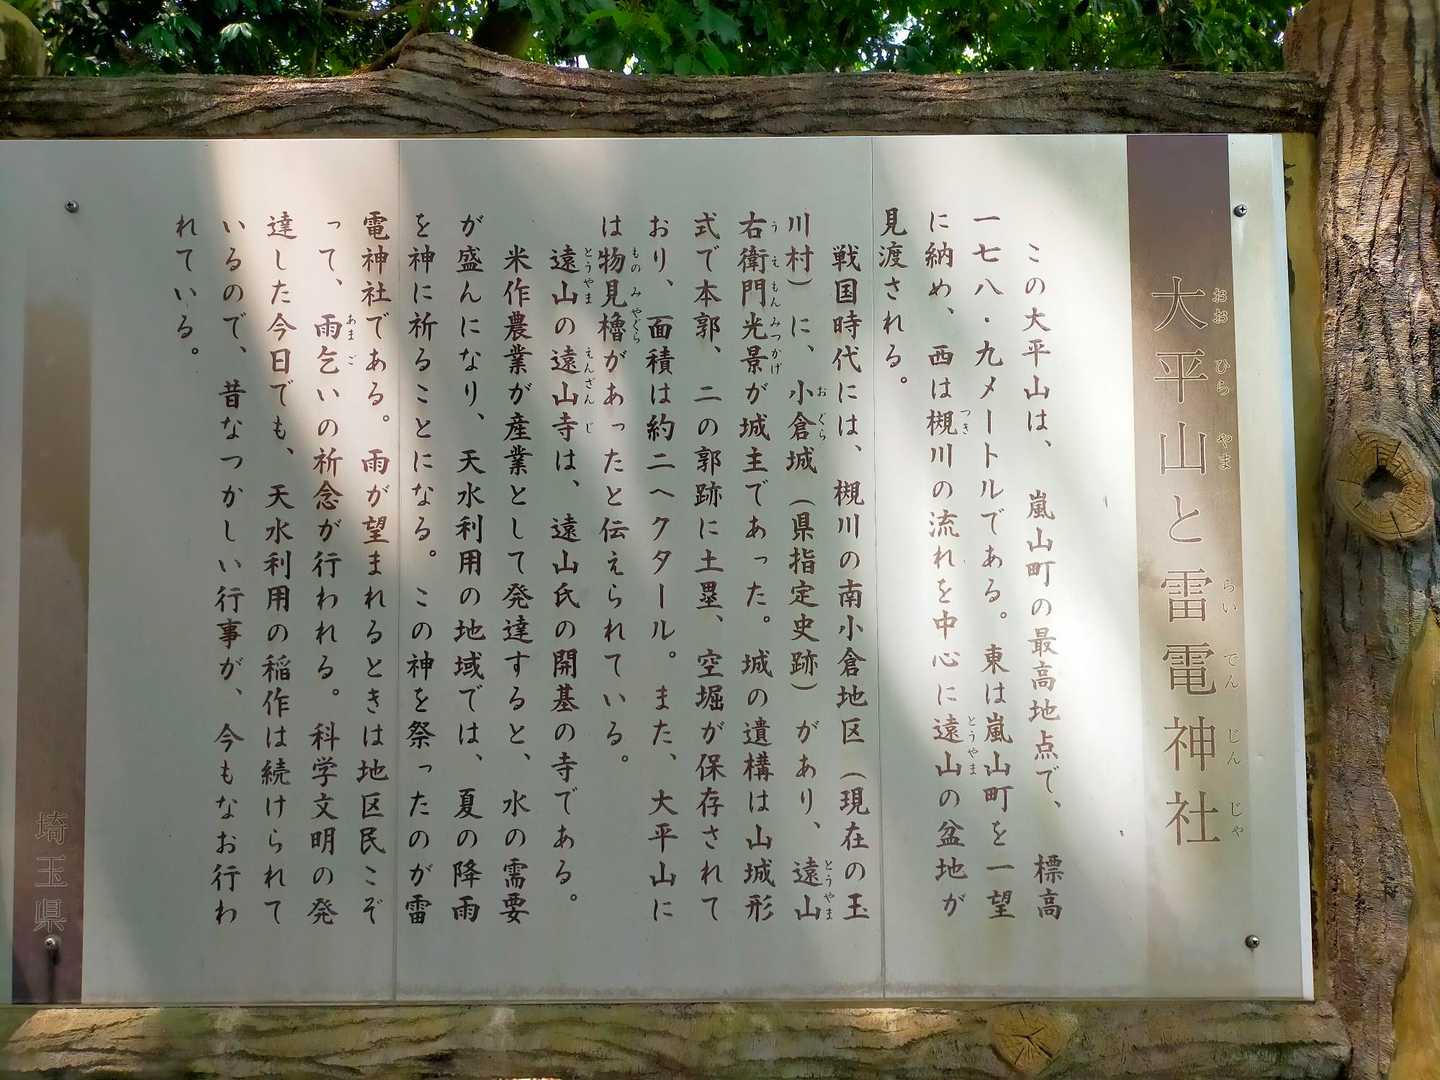 大平山と雷電神社
おおひらやま らいでんじんじゃ
この大平山は、嵐山町の最高地点で、標高
一七八・九メートルである。東は嵐山町を一望
に納め、西は槻川の流れを中心に遠山の盆地が
つき とうやま
見渡される。
戦国時代には、槻川の南小倉地区(現在の玉
川村)に、小倉城(県指定史跡)があり、遠山
おぐら とうやま
右衛門光景が城主であった。城の遺構は山城形
うえもんみつかげ
式で本郭、二の郭跡に土塁、空堀が保存されて
おり、面積は約二ヘクタール。また、大平山に
は物見櫓があったと伝えられている。
ものみやぐら
遠山の遠山寺は、遠山氏の開基の寺である。
とうやま えんざんじ
米作農業が産業として発達すると、水の需要
が盛んになり、天水利用の地域では、夏の降雨
を神に祈ることになる。この神を祭ったのが雷
電神社である。雨が望まれるときは地区民こぞ
って、雨乞いの祈念が行われる。科学文明の発
あまご
達した今日でも、天水利用の稲作は続けられて
いるので、昔なつかしい行事が、今もなお行わ
れている。
埼玉県